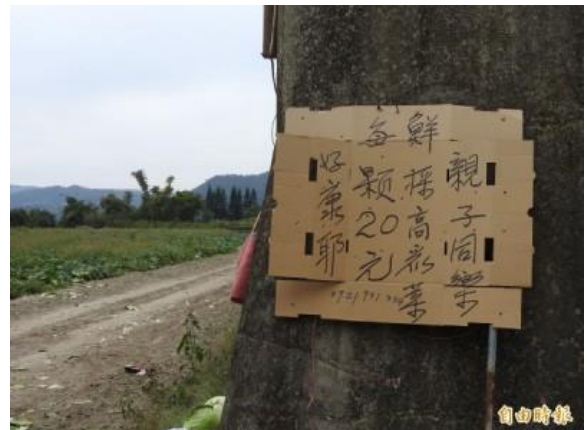 親子同樂
鮮採高麗菜
每顆20元
好康耶
自由時報